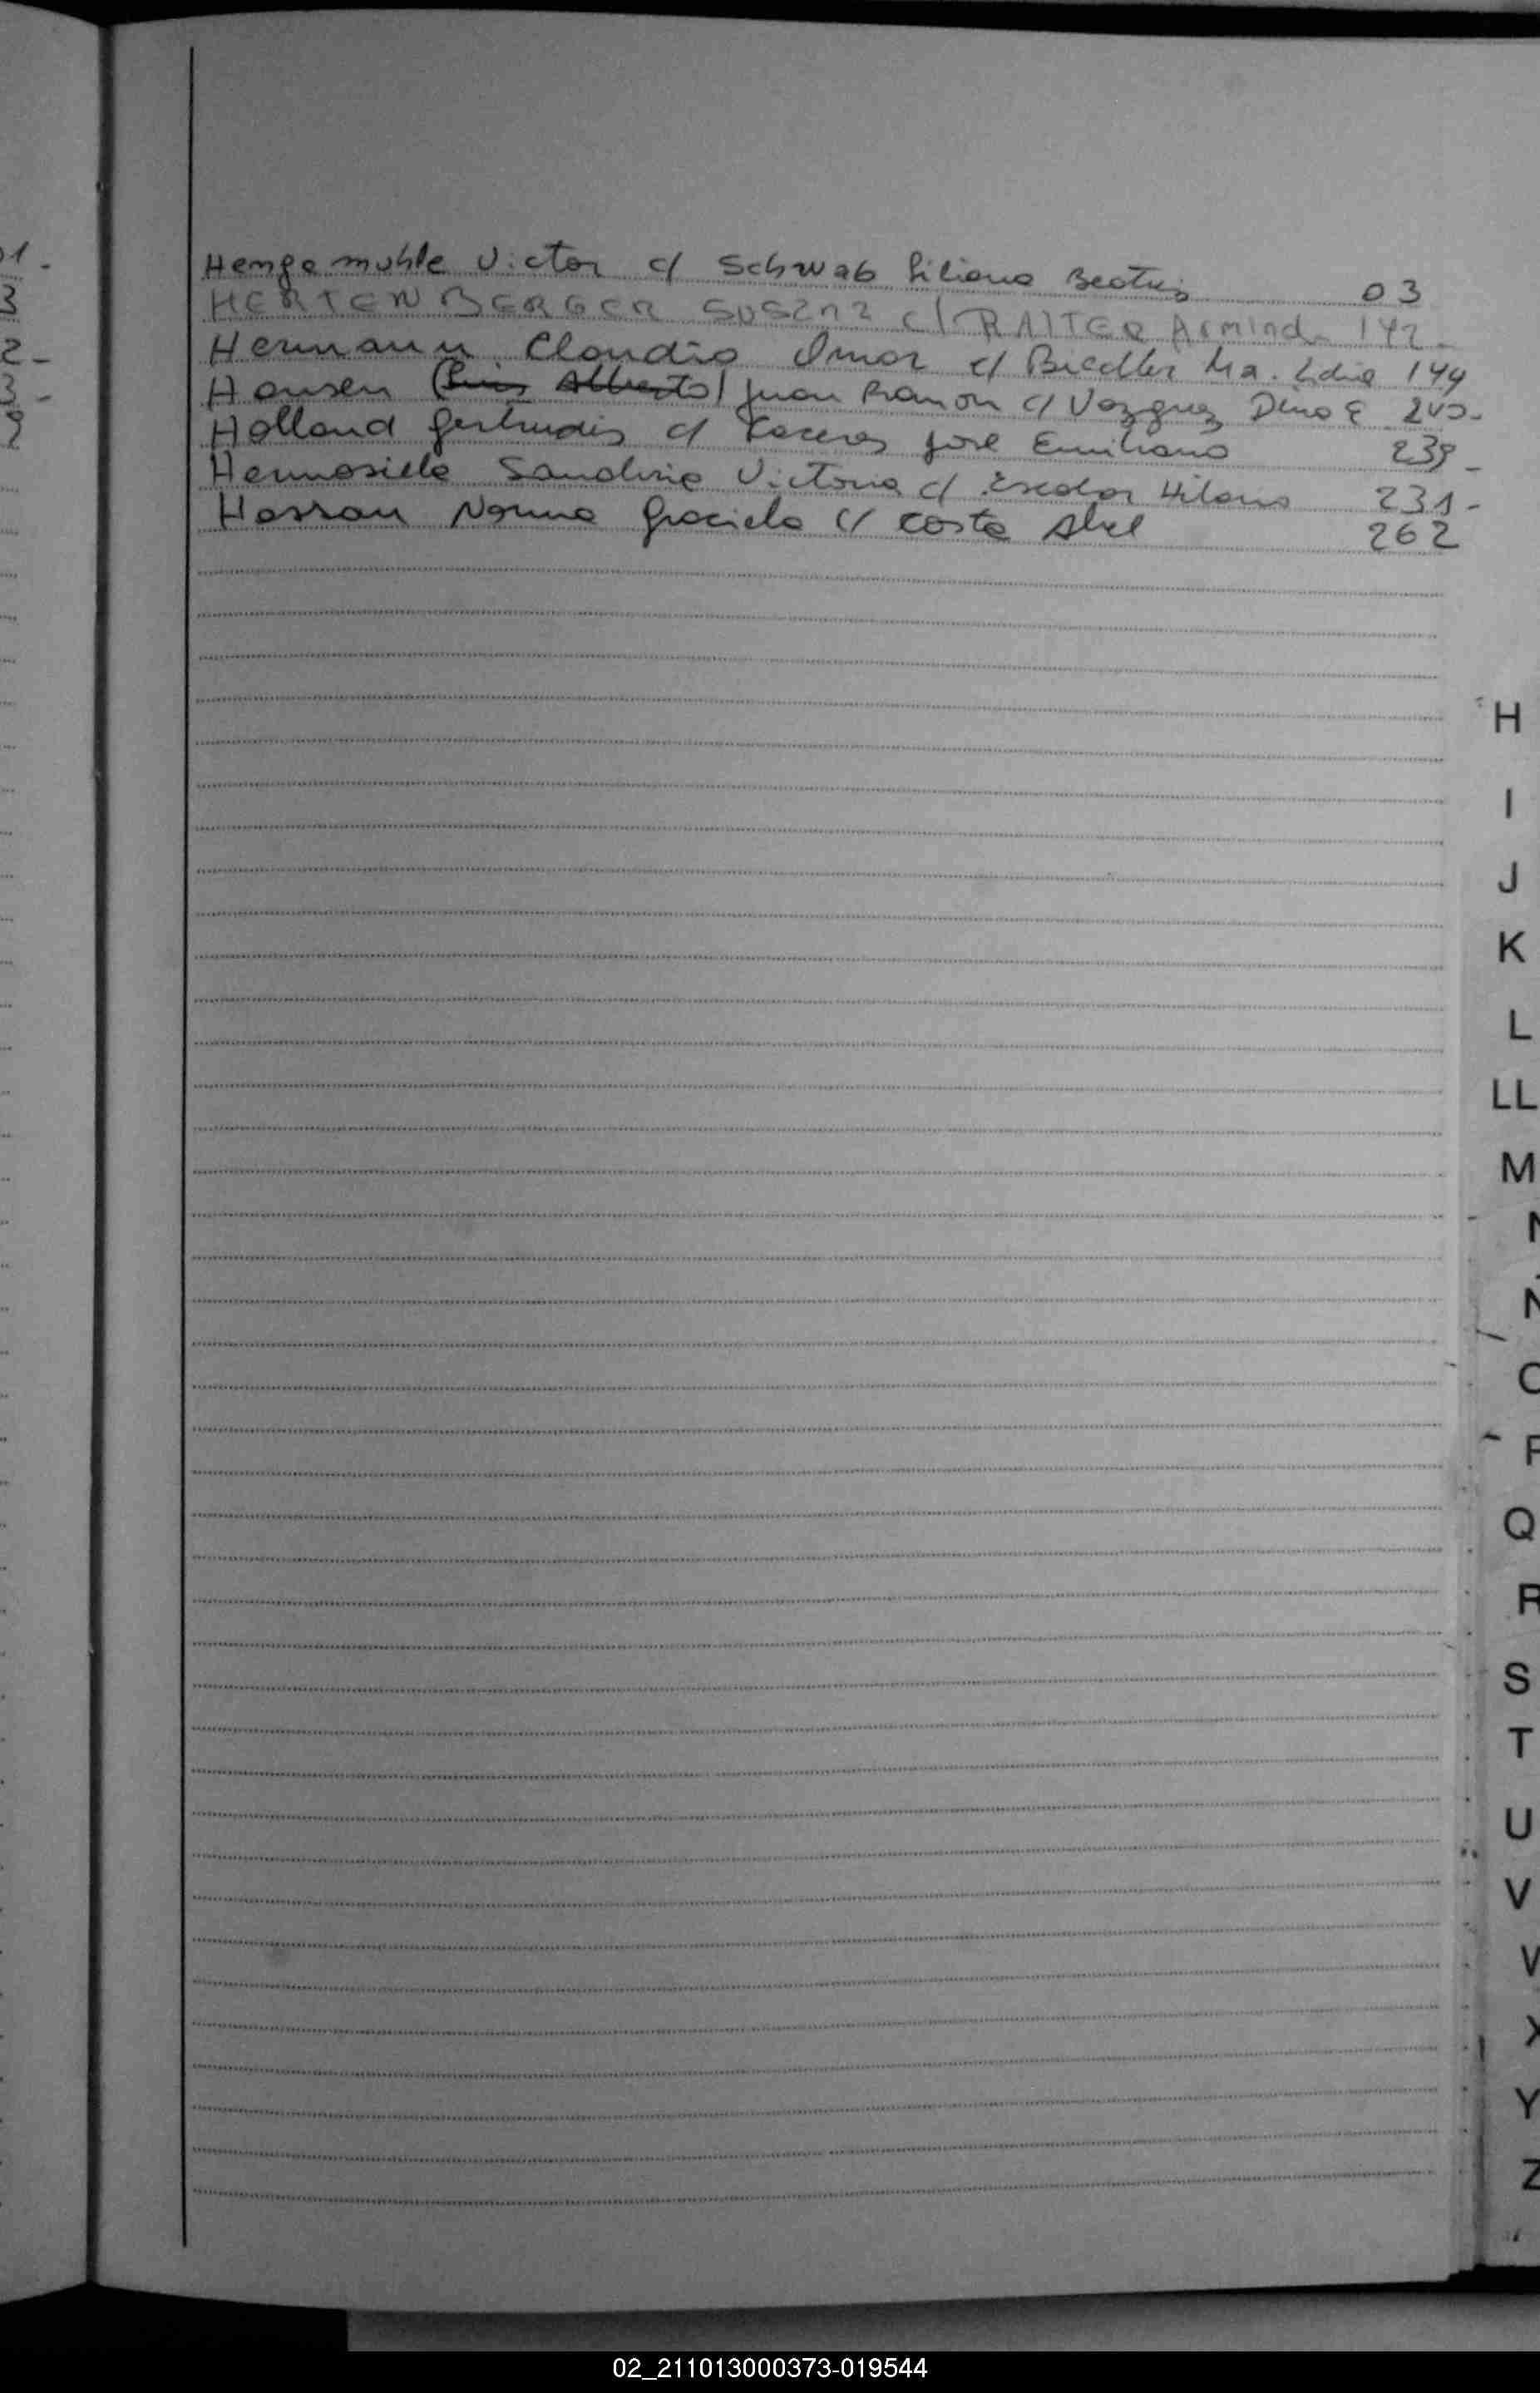 Hengemuhle Victor c/ Schwab Liliana Beatriz 03
HERTENBERGER SUSANA c/ RAITER Arminda 142
Hermann Claudio Omar c/ Biedler Ma. Lidia 144
Hansen (Luis Alberto) Juan Ramon c/ Vazquez Delia E 245-
Holland Gertrudis c/ Caceres Jose Emiliano 239-
Hermosilla Sandina Victoria c/ Escobar Hilario 231-
Hassan Norma Graciela c/ Costa Abel 262
H
I
J
K
L
LL
M
N
Ñ
O
P
Q
R
S
T
U
V
X
Y
Z
02_211013000373-019544